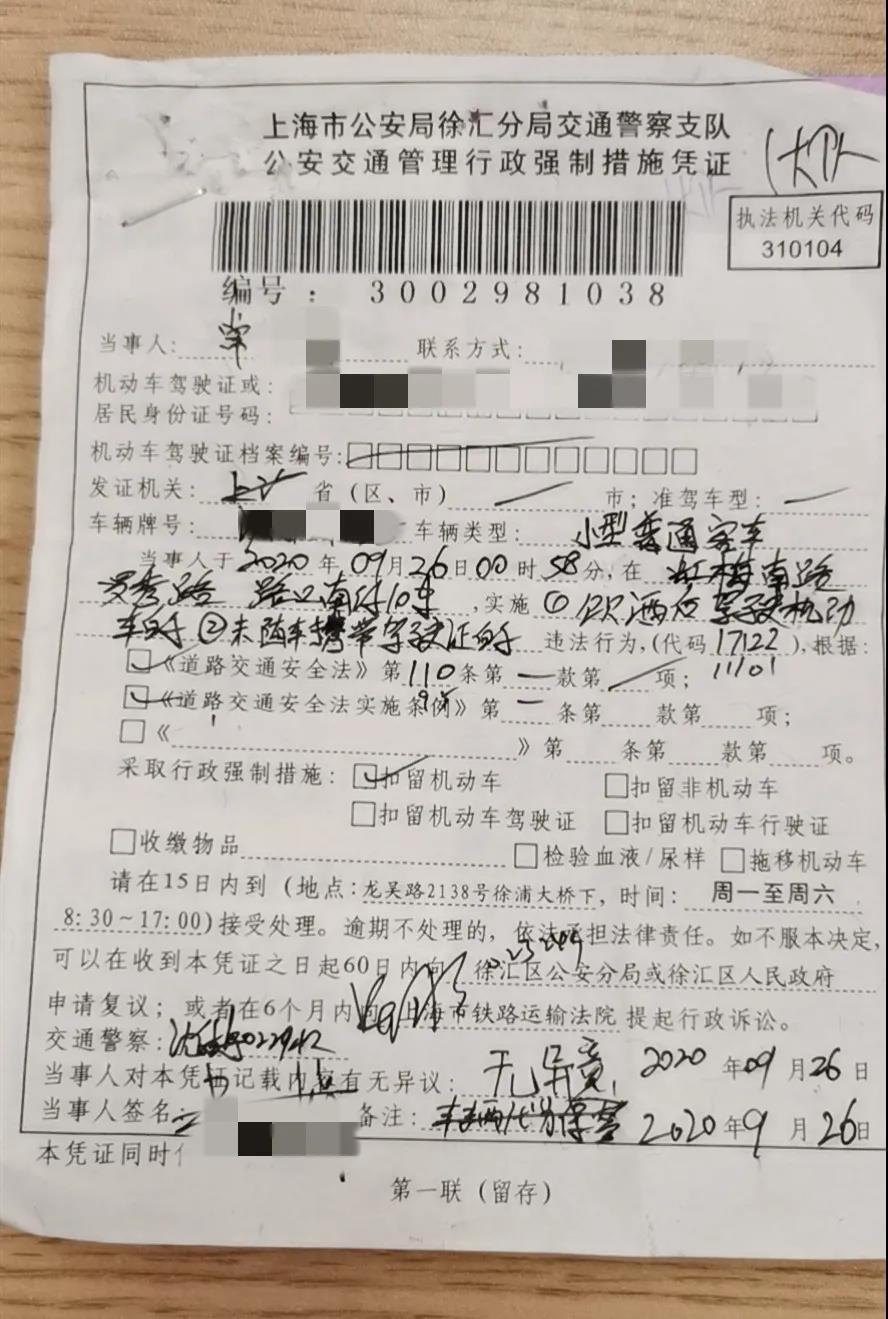 上海市公安局徐汇分局交通警察支队
公安交通管理行政强制措施凭证
执法机关代码
310104
编号：3002981038
当事人： 联系方式：
机动车驾驶证或：
居民身份证号码：
机动车驾驶证档案编号：
发证机关：上海 省（区、市） 市；准驾车型：
车辆牌号： 车辆类型：小型普通客车
当事人于2020年09月26日00时58分，在 虹梅南路
罗秀路 路口南行10米，实施①饮酒后驾驶机动
车的行 ②未随车携带驾驶证的行 违法行为，(代码17122)，根据：
1101
《道路交通安全法》第110条第一款第 项；
《道路交通安全法实施条例》第 条第 款第 项；
《 》第 条第 款第 项。
采取行政强制措施：扣留机动车 扣留非机动车
扣留机动车驾驶证 扣留机动车行驶证
收缴物品 检验血液/尿样 拖移机动车
请在15日内到（地点：龙吴路2138号徐浦大桥下，时间：周一至周六
8:30~17:00)接受处理。逾期不处理的，依法承担法律责任。如不服本决定，
可以在收到本凭证之日起60日内向 徐汇区公安分局或徐汇区人民政府
申请复议；或者在6个月内向上海市铁路运输法院 提起行政诉讼。
交通警察： 2020年09月26日
当事人对本凭证记载内容有无异议：无异议
当事人签名 备注： 2020年9月26日
本凭证同时
第一联（留存）